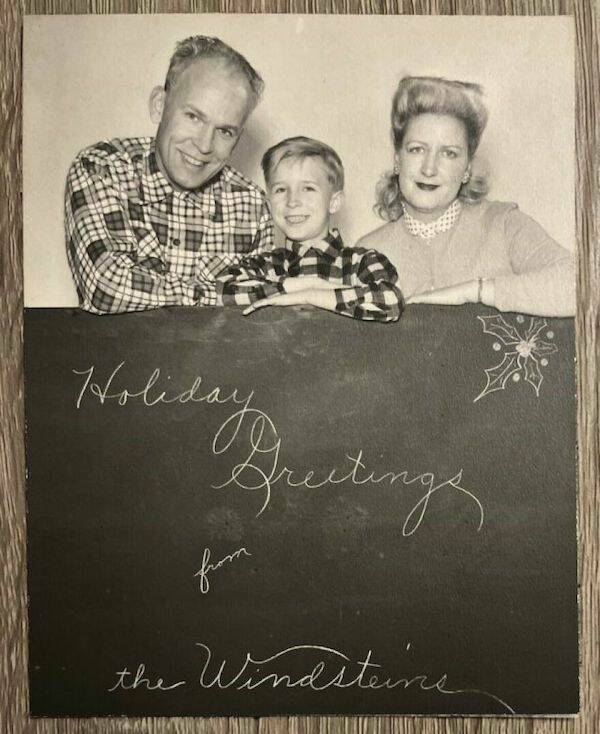 Holiday
Greetings
from
the Windsteins